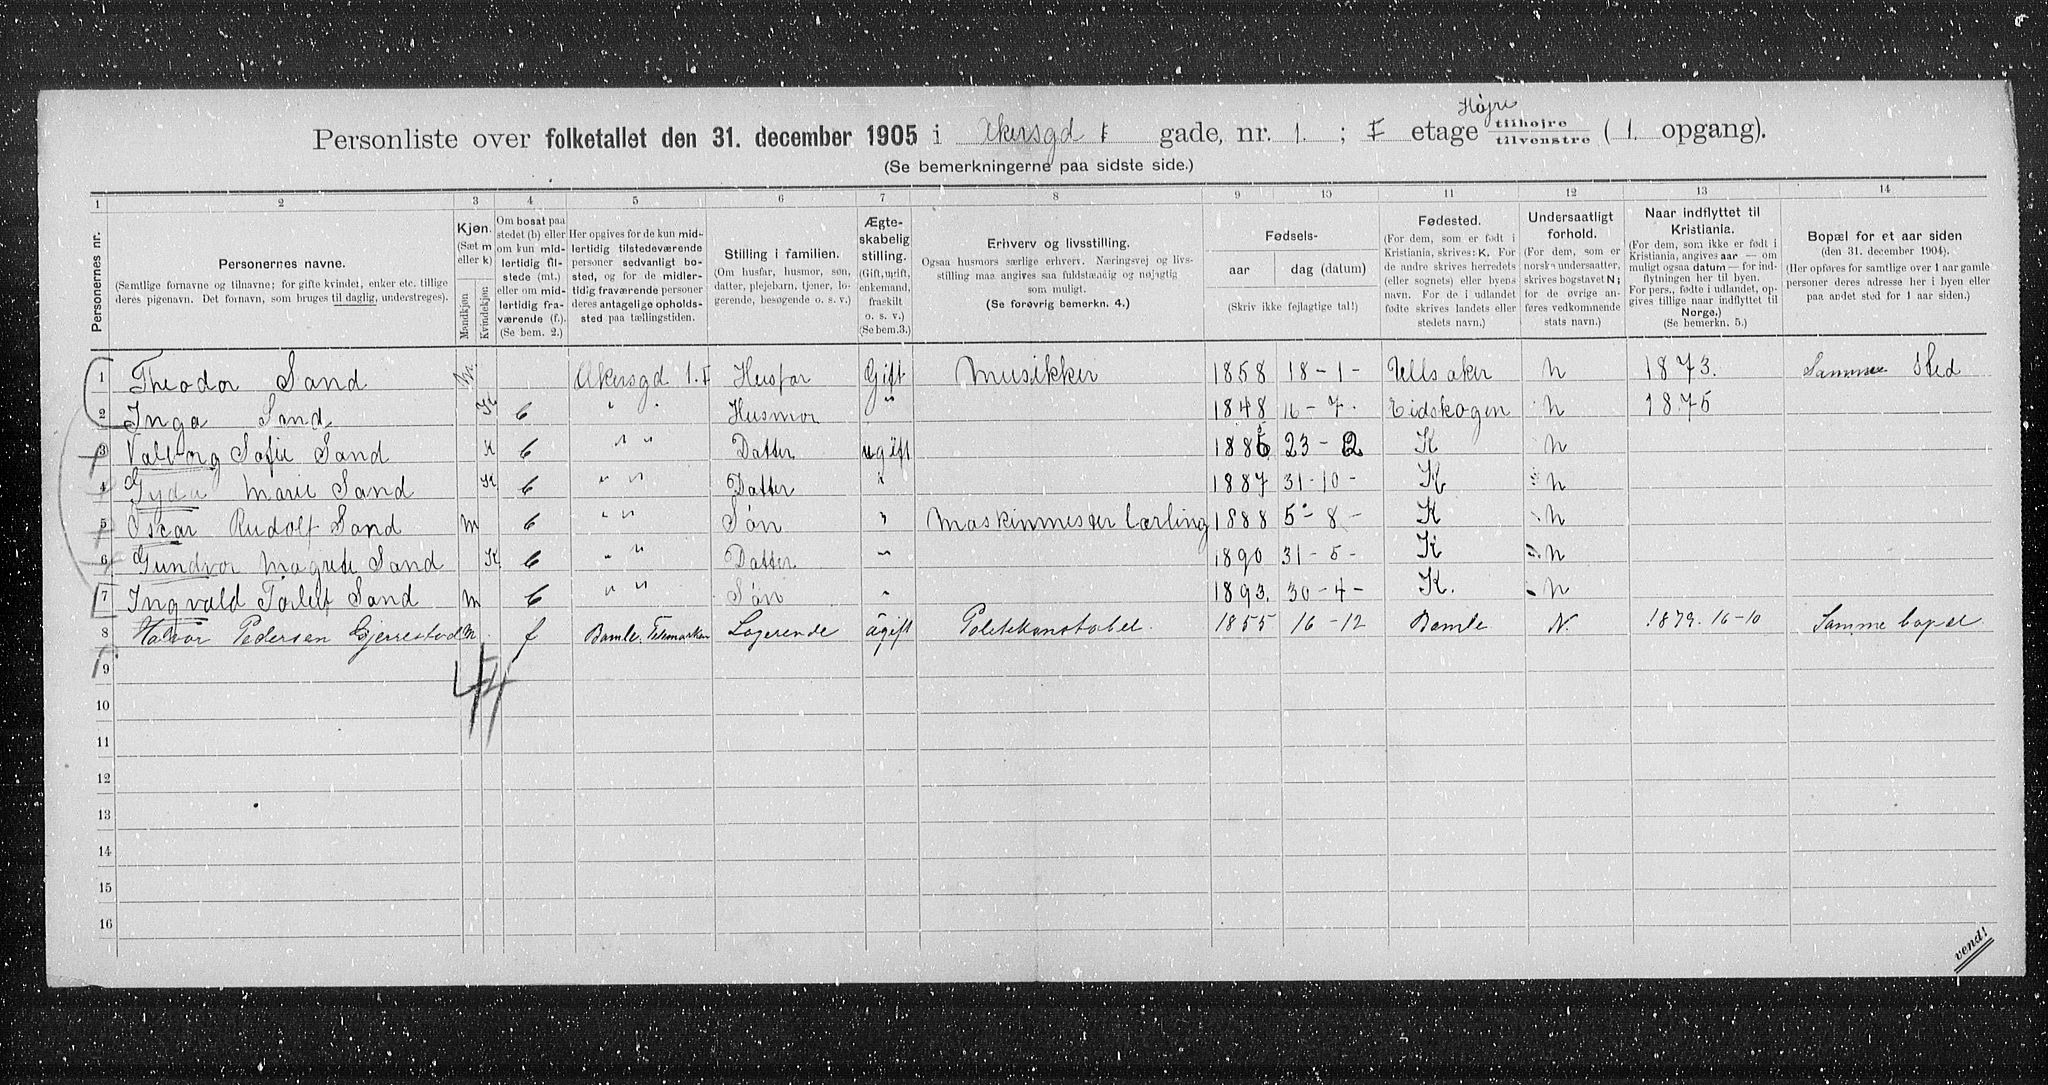 Højre
Personliste over folketallet den 31. december 1905 i Akersgd gade, nr. 1. ; I etage tilhøjre tilvenstre ( 1. opgang).
(Se bemerkningerne paa sidste side.)
1 2 3 4 5 6 7 8 9 10 11 12 13 14
Personernes nr.
Personernes navne.
(Samtlige fornavne og tilnavne; for gifte kvinder, enker etc. tillige
deres pigenavn. Det fornavn, som bruges til daglig, understreges).
Kjøn.
(Sæt m
eller k)
Mandkjøn.
Kvindekjøn.
Om bosat paa
stedet (b) eller
om kun mid-
lertidig til-
stede (mt.)
eller om mid-
lertidig fra-
værende (f.).
(Se bem. 2.)
Her opgives for de kun mid-
lertidig tilstedeværende
personer sedvanligt bo-
sted, og for de midler-
tidig fraværende personer
deres antagelige opholds-
sted paa tællingstiden.
Stilling i familien.
(Om husfar, husmor, søn,
datter, plejebarn, tjener, lo-
gerende, besøgende o. s. v.)
Ægte-
skabelig
stilling.
(Gift, ugift,
enkemand,
fraskilt
o. s. v.)
(Se bem.3.)
Erhverv og livsstilling.
Ogsaa husmors særlige erhverv. Næringsvej og livs-
stilling maa angives saa fuldstændig og nøjagtig
som muligt.
(Se forøvrig bemerkn. 4.)
Fødsels-
aar dag (datum)
(Skriv ikke fejlagtige tal!)
Fødested.
(For dem, som er født i
Kristiania, skrives: K. For
de andre skrives herredets
(eller sognets) eller byens
navn. For de i udlandet
fødte skrives landets eller
stedets navn.)
Undersaatligt
forhold.
(For dem, som er
norske undersaatter,
skrives bogstavet N;
for de øvrige an-
føres vedkommende
stats navn.)
Naar indflyttet til
Kristiania.
(For dem, som ikke er født i
Kristiania, angives aar — om
muligt ogsaa datum — for ind-
flytningen her til byen.
For pers., fødte i udlandet, op-
gives tillige naar indflyttet til
Norge.)
(Se bemerkn. 5.)
Bopæl for et aar siden
(den 31. december 1904).
(Her opføres for samtlige over 1 aar gamle
personer deres adresse her i byen eller
paa andet sted for 1 aar siden.)
1 Theodor Sand m. Akersgd 1. I Husfar Gift Musikker 1858 18 - 1 - Ullsaker N 1873. Samme Sted
2 Inga Sand K b " " Husmor " 1848 16 - 7. Eidskogen N 1875
3 Valborg Sofie Sand K b " " Datter ugift 23 - 2 K N
4 Gyda Marie Sand K b " " Datter " 1887 31 - 10 - K N
5 Oscar Rudolf Sand m b " " Søn " Maskinmester Lærling 1888 5 - 8 - K N
6 Gundvor Magrete Sand K b " " Datter " 1890 31 - 5 - K N
7 Ingvald Torleif Sand m b " " Søn " 1893. 30 - 4 - K. N
8 Halvor Pedersen Gjerrestad m f Bamle. Telemarken Logerende ugift Politikonstabel 1855 16 - 12 Bamle N. 1879. 16-10 Samme bopæl
9
10
11
12
13
14
15
16
vend!